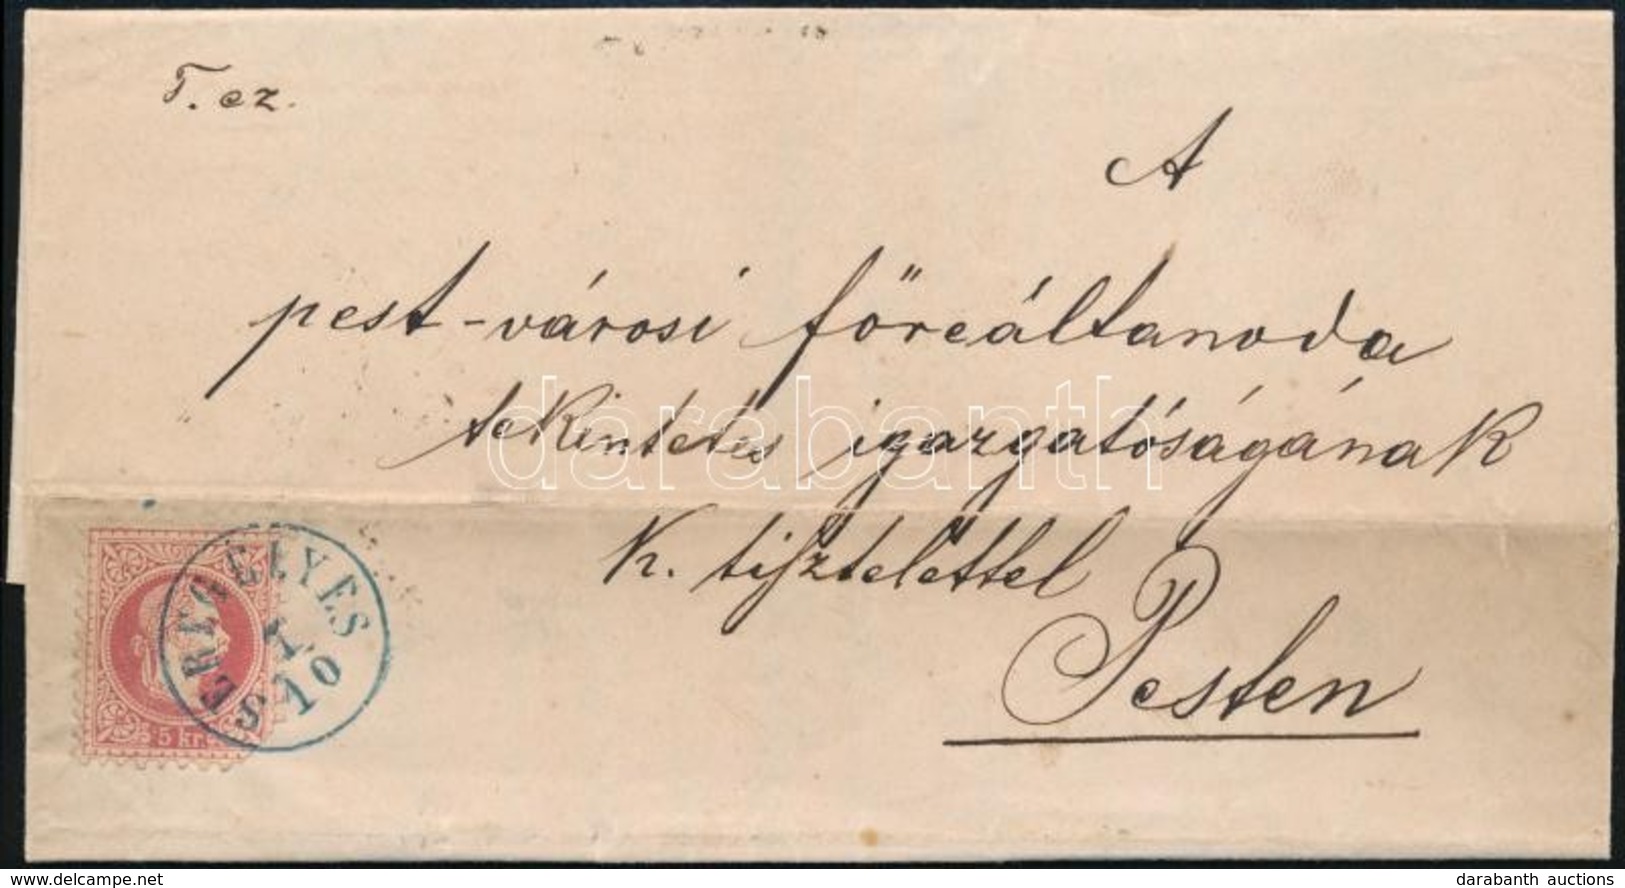 T. cz.
A
pest-városi főreáltanoda
tekintetes igazgatóságának
k. tisztelettel
Pesten
5 kr.
10
darabanth
delcampe.net
darabanth auctions